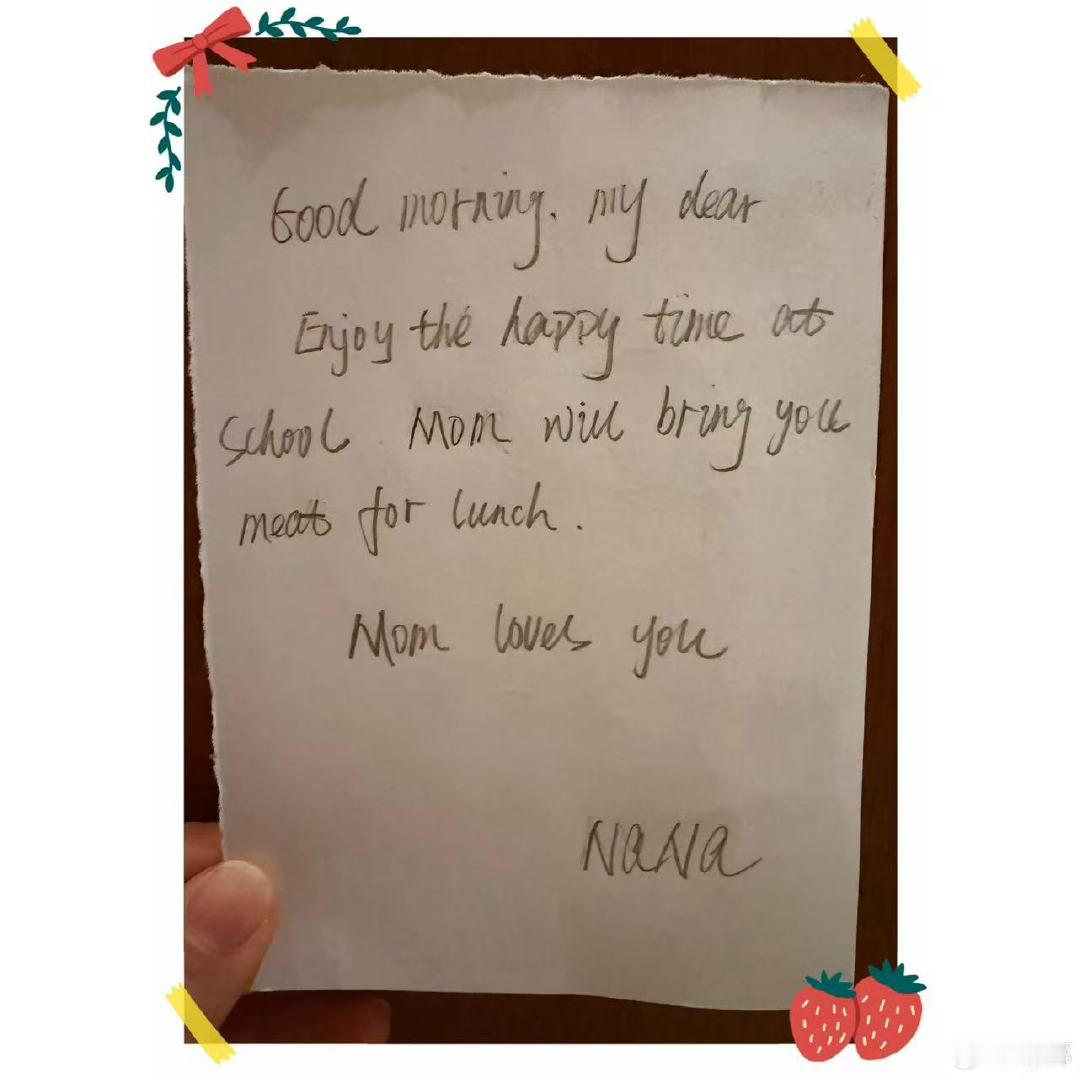 Good morning. my dear
Enjoy the happy time at
school Mom will bring you
meat for lunch.
Mom loves you
NaNa